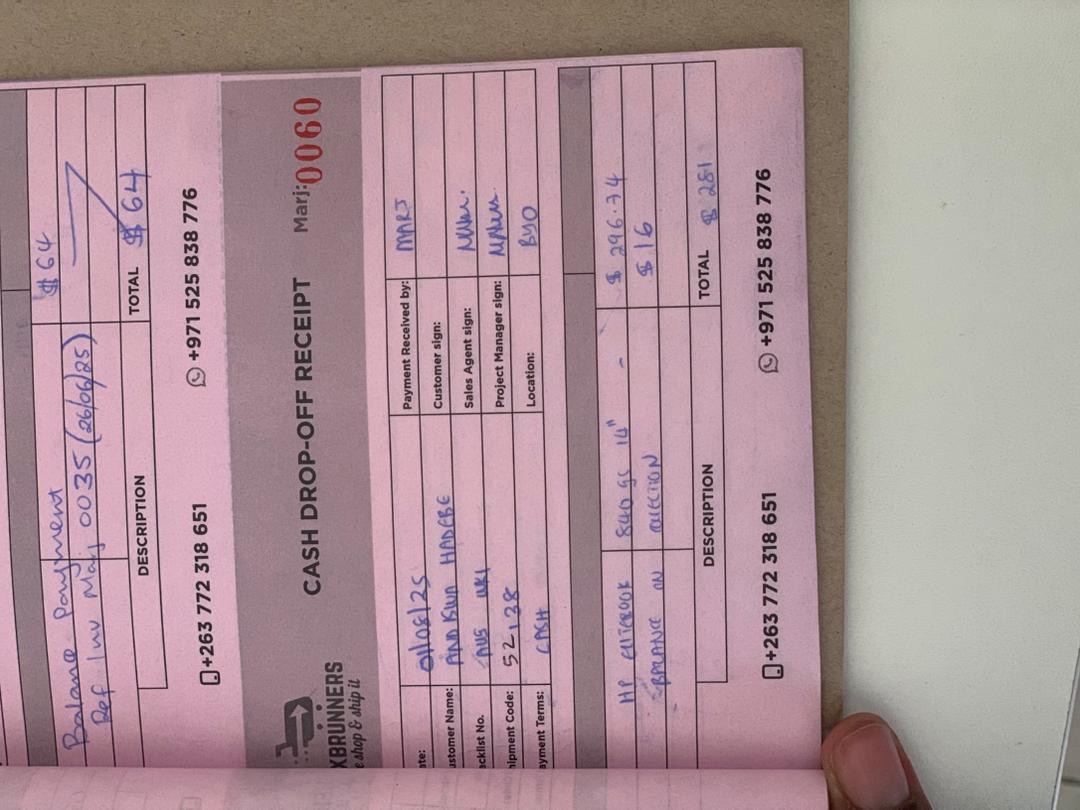 $64
Balance Payment
Ref Inv Marj 0035 (26/06/25)
DESCRIPTION TOTAL $64
+263 772 318 651 +971 525 838 776
XBRUNNERS
e shop & ship it
CASH DROP-OFF RECEIPT Marj: 0060
ate: 01/08/25 Payment Received by: MARJ
ustomer Name: HADEBE Customer sign:
acklist No. AUG Sales Agent sign:
hipment Code: 52,138 Project Manager sign:
ayment Terms: CASH Location: BYO
HP ELITEBOOK 840 G5 14" - $ 296.74
BALANCE ON $16
DESCRIPTION TOTAL $ 281
+263 772 318 651 +971 525 838 776